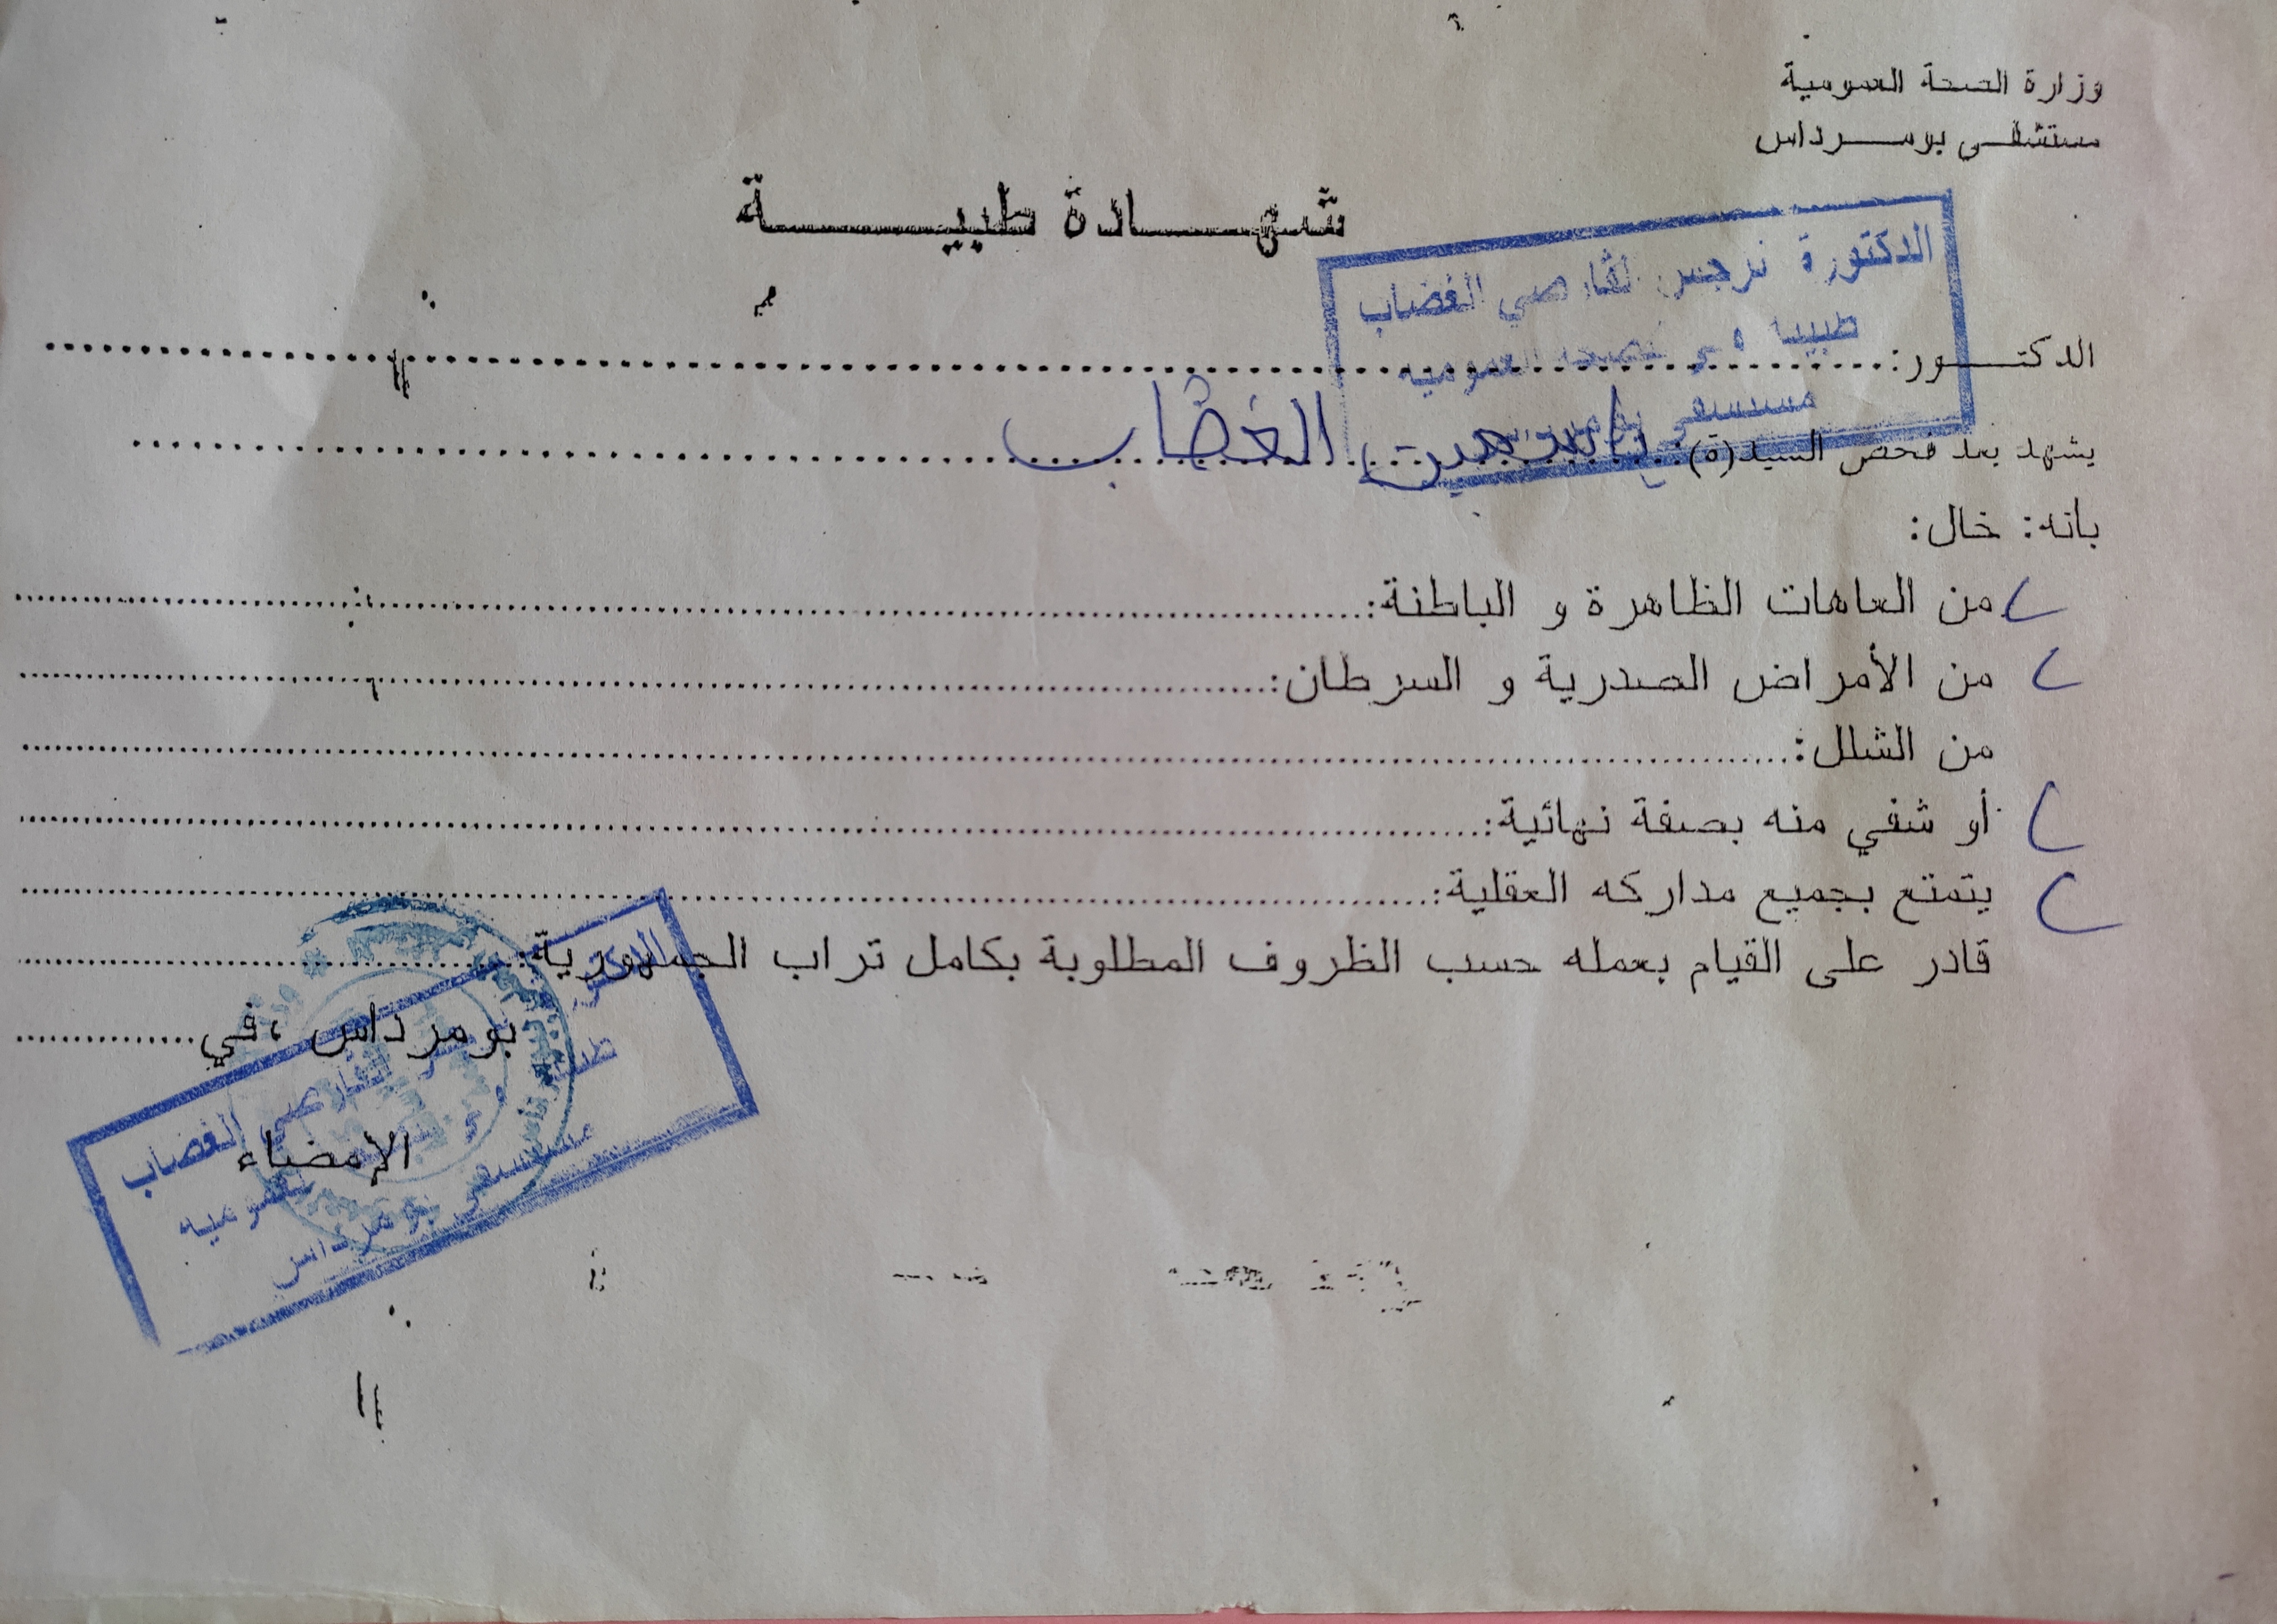 وزارة الصحة العمومية
مستشفى بومرداس
شهادة طبية
الدكتورة نرجس القارصي الغضاب
العمومية
الدكتور:
يشهد بعد فحص السيد(ة): الغضاب
بانه: خال:
من العاهات الظاهرة و الباطنة:
من الأمراض الصدرية و السرطان:
من الشلل:
أو شفي منه بصفة نهائية:
يتمتع بجميع مداركه العقلية:
قادر على القيام بعمله حسب الظروف المطلوبة بكامل تراب الجمهورية:
بومرداس ،في
القارصي الغضاب
الإمضاء
مستشفى بومرداس